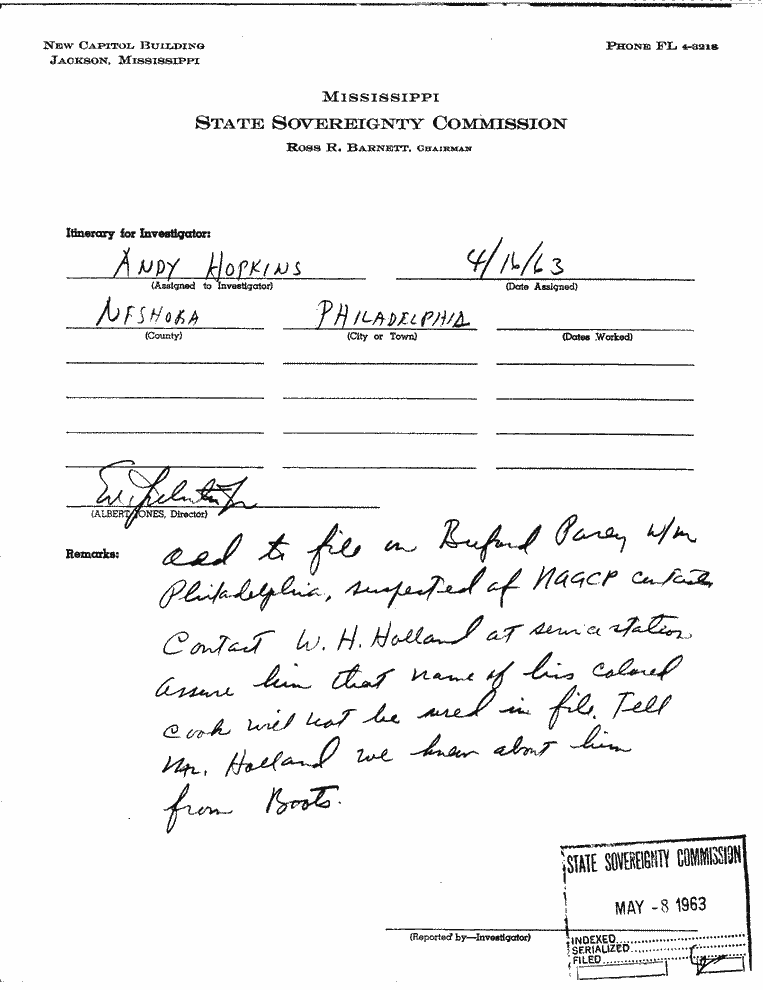 NEW CAPITOL BUILDING
JACKSON, MISSISSIPPI
PHONE FL 4-3218
MISSISSIPPI
STATE SOVEREIGNTY COMMISSION
ROSS R. BARNETT, CHAIRMAN
Itinerary for Investigator:
ANDY HOPKINS 4/16/63
(Assigned to Investigator) (Date Assigned)
NESHOBA PHILADELPHIA
(County) (City or Town) (Dates Worked)
(ALBERT JONES, Director)
Remarks: add to file on Buford w/m
Philadelphia, suspected of NAACP contacts
Contact W. H. Holland at service station
assure him that name of his colored
cook will not be used in file. Tell
Mr. Holland we know about him
from Boots.
STATE SOVEREIGNTY COMMISSION
MAY -8 1963
INDEXED
SERIALIZED
FILED
(Reported by—Investigator)